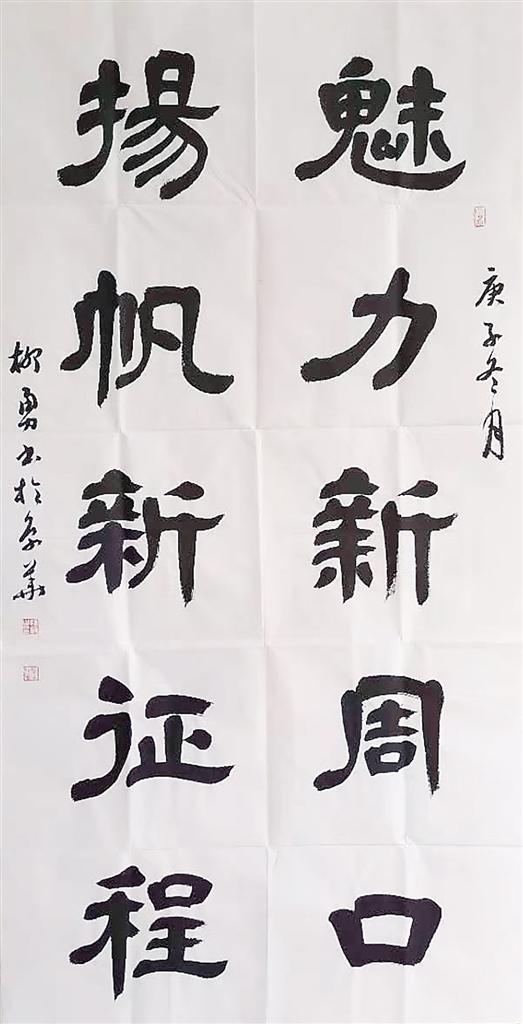 庚子冬月
魅力新周口
揚帆新征程
柳勇书於京華